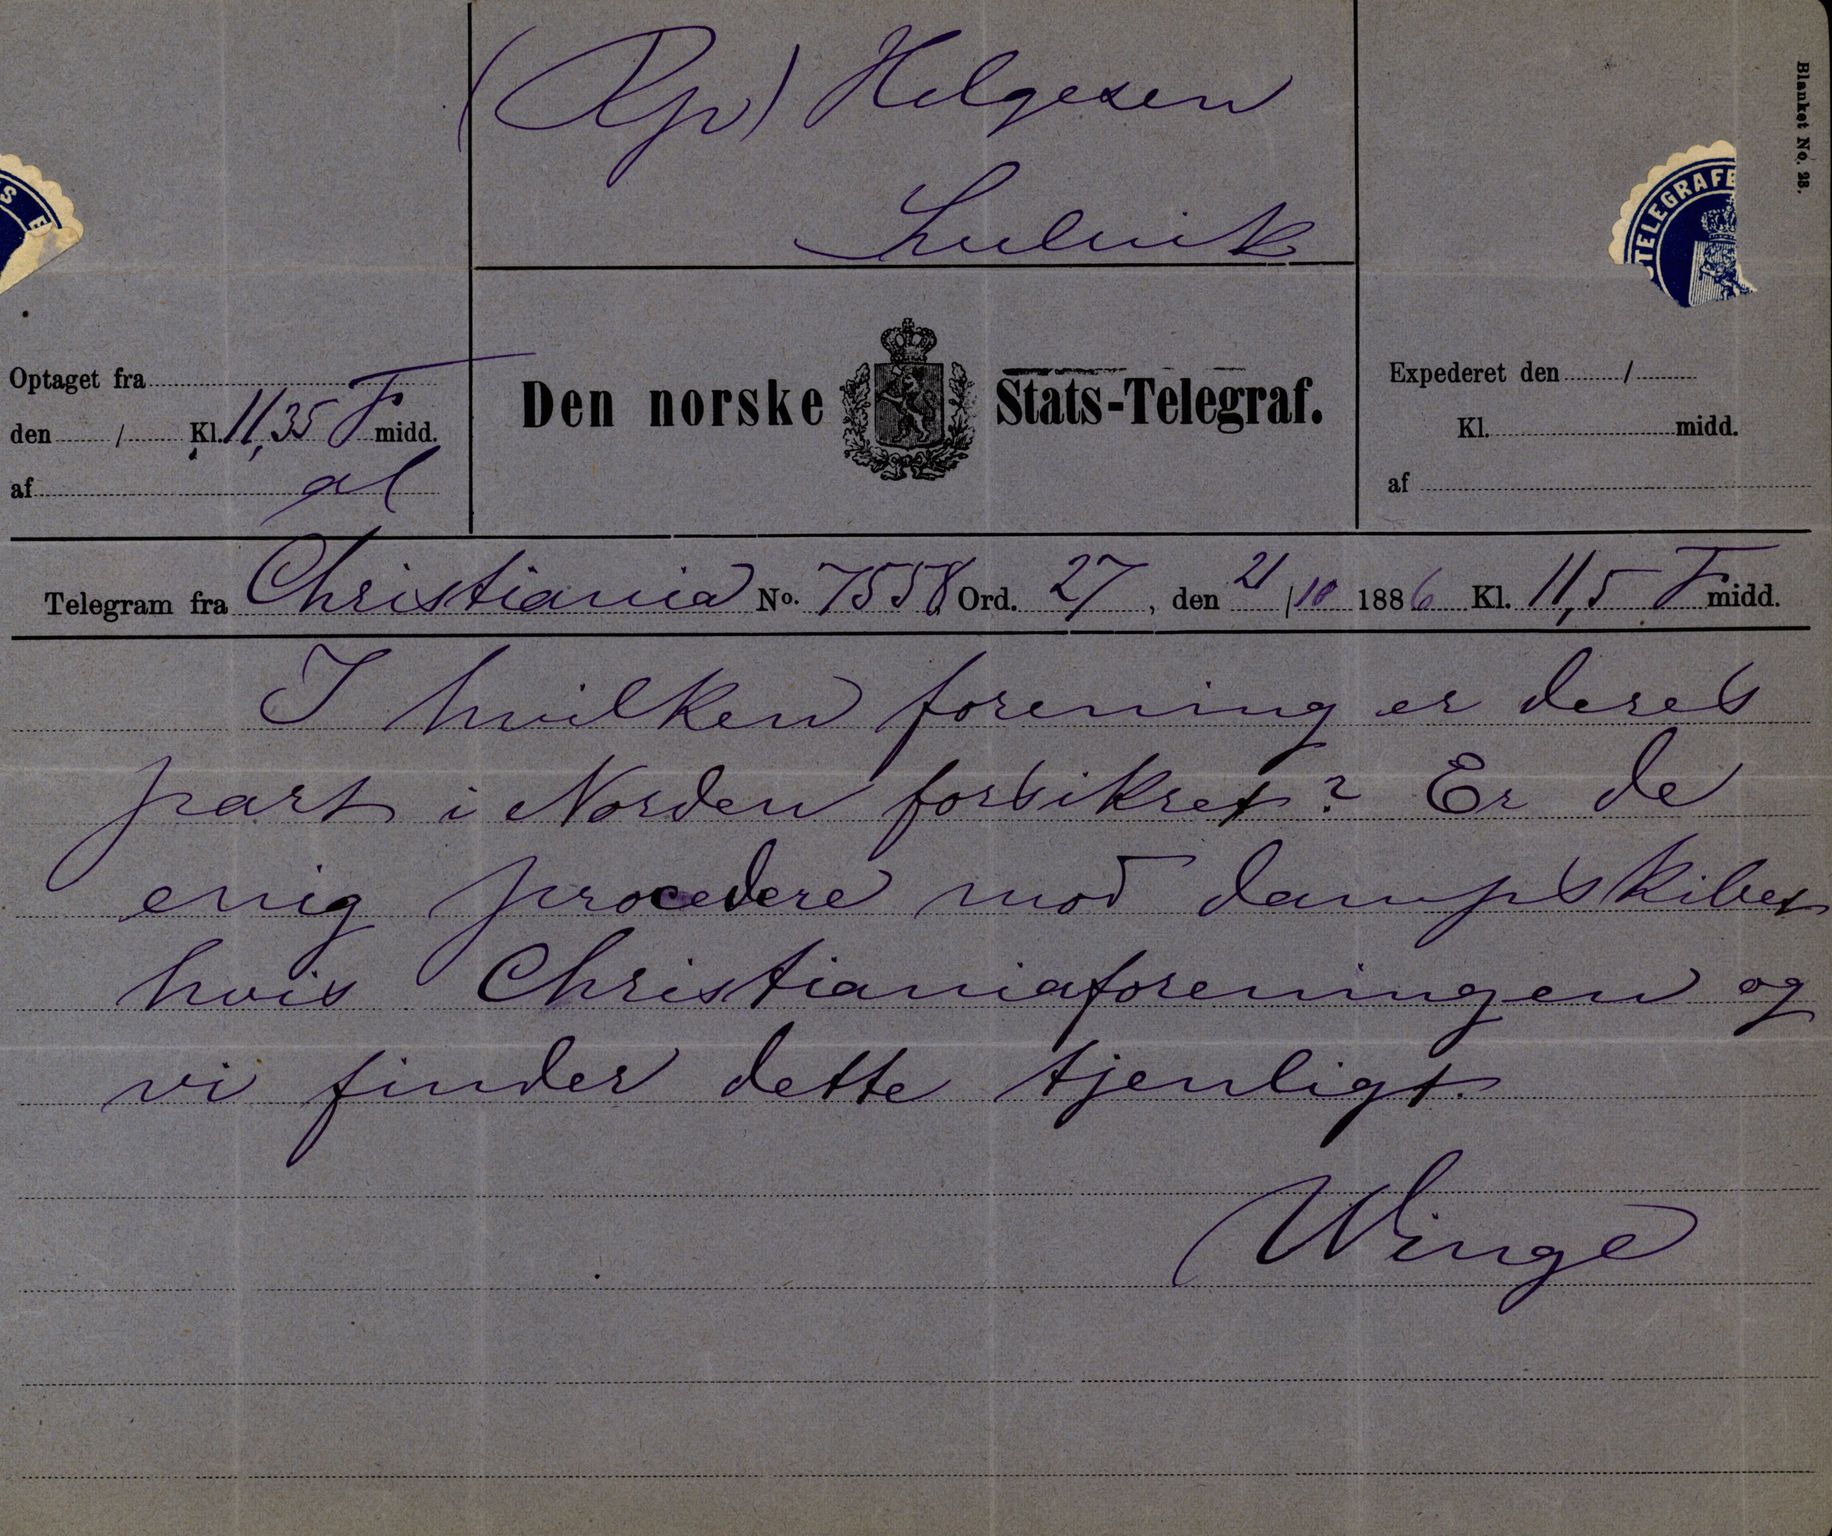 (Rp) Helgesen
Lulvik
Blanket No. 23.
TELEGRAFE
Optaget fra
den / Kl. 11,35 F midd.
af al
Den norske Stats-Telegraf.
Expederet den /
Kl. midd.
af
Telegram fra Christiania No. 7558 Ord. 27, den 21/10 1886 Kl. 11,5 F midd.
I hvilken forening er deres
part i Norden forsikret? Er de
enig procedere mod dampskibet
hvis Christianiaforeningen og
vi finder dette tjenligt.
Winge